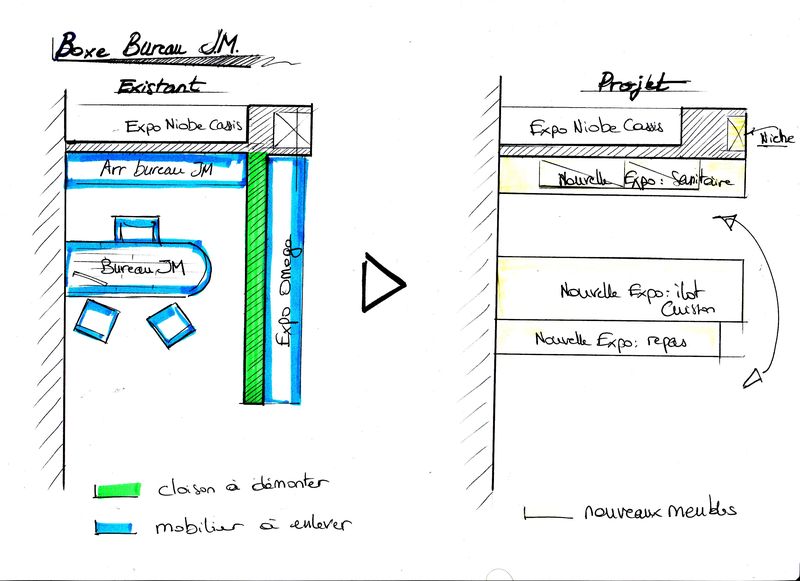 Boxe Bureau J.M.
Existant
Expo Niobe Cassis
Arr bureau JM
Bureau JM
Expo Omega
cloison à démonter
mobilier à enlever
Projet
Expo Niobe Cassis
Niche
Nouvelle Expo: Sanitaire
Nouvelle Expo: ilot
Cuisson
Nouvelle Expo: repas
nouveaux meubles